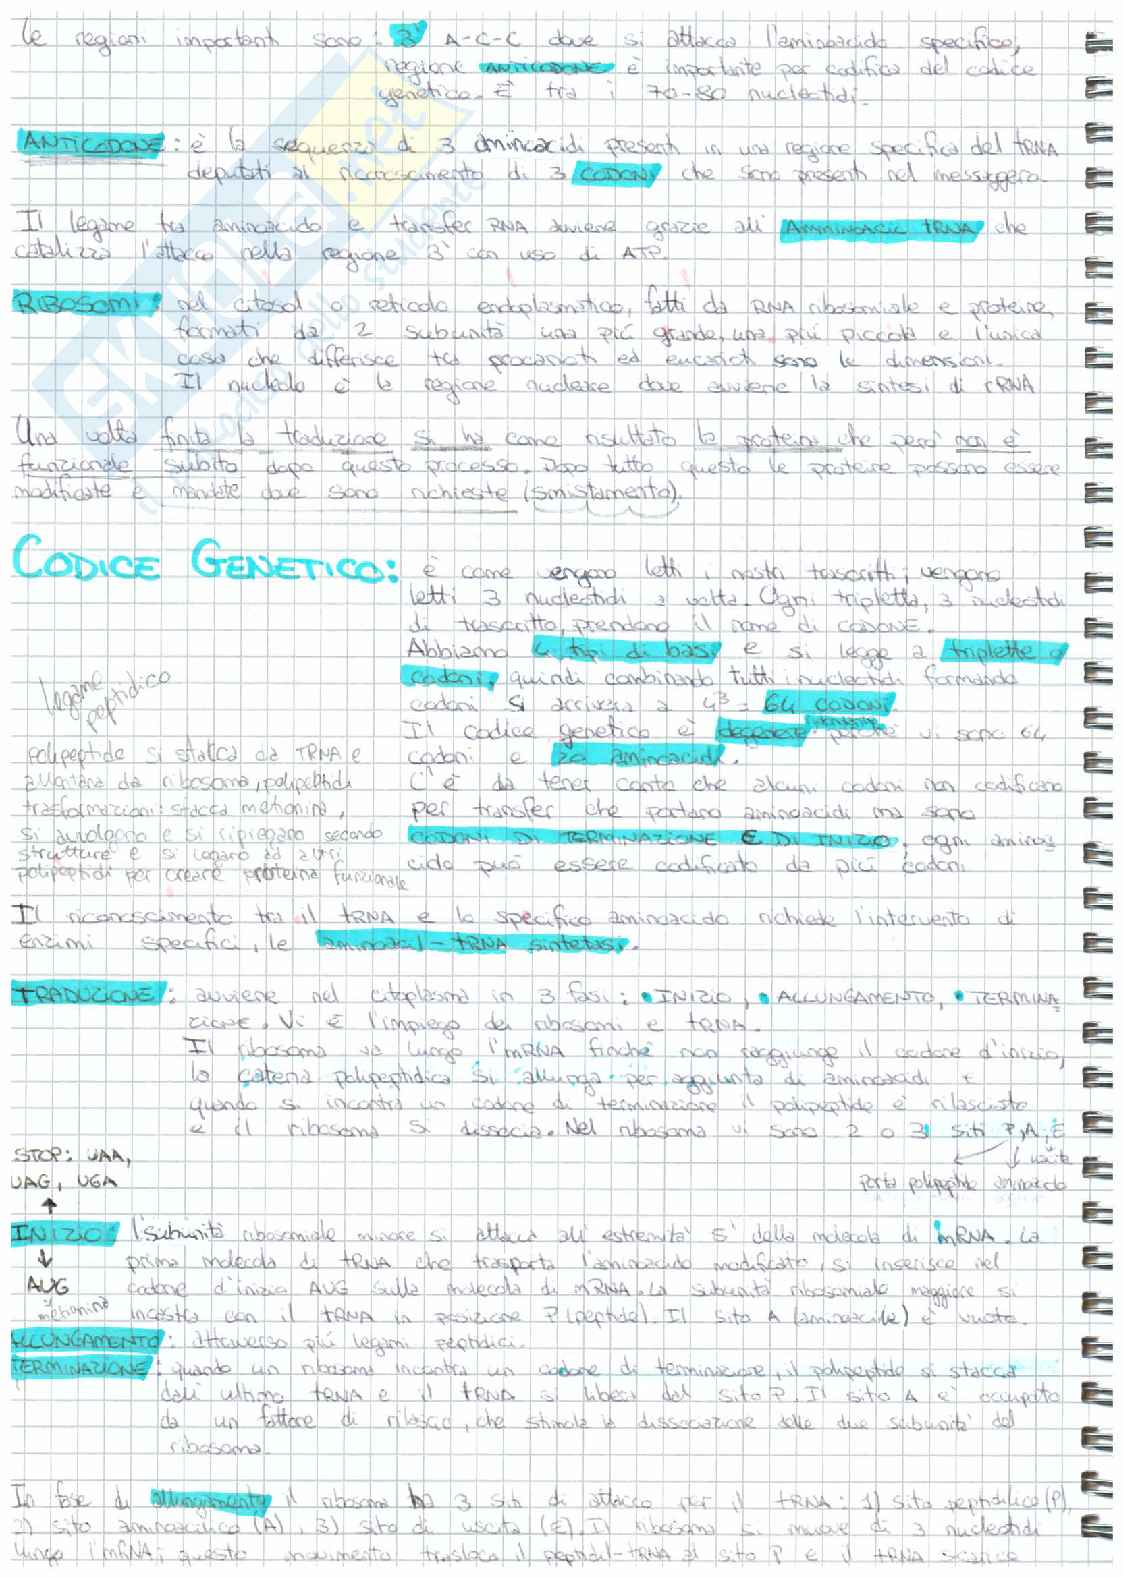 Le regioni importanti sono: 3' A-C-C dove si attacca l'aminoacido specifico,
regione ANTICODONE è importante per codifica del codice
genetico. È tra i 70-80 nucleotidi.
ANTICODONE: è la sequenza di 3 aminoacidi presenti in una regione specifica del tRNA
deputati al riconoscimento di 3 CODONI che sono presenti nel messaggero.
Il legame tra aminoacido e transfer RNA avviene grazie all' AMMINOACIL tRNA che
catalizza l'attacco nella regione 3' con uso di ATP.
RIBOSOMI: nel citosol o reticolo endoplasmatico, fatti da RNA ribosomiale e proteine,
formati da 2 subunità una più grande, una più piccola e l'unica
cosa che differisce tra procarioti ed eucarioti sono le dimensioni.
Il nucleolo è la regione nucleare dove avviene la sintesi di rRNA
Una volta finita la traduzione si ha come risultato la proteina che però non è
funzionale subito dopo questo processo. Dopo tutto questo le proteine possono essere
modificate e mandate dove sono richieste (smistamento).
CODICE GENETICO: è come vengono letti i nostri trascritti; vengono
letti 3 nucleotidi a volta. Ogni tripletta, 3 nucleotidi
di trascritto, prendono il nome di CODONE.
Abbiamo 4 tipi di basi e si legge a triplette o
codoni, quindi combinando tutti i nucleotidi formando
codoni si arriverà a 4³ = 64 CODONI.
Il codice genetico è degenere perché vi sono 64
codoni e 20 aminoacidi.
C'è da tener conto che alcuni codoni non codificano
per transfer che portano aminoacidi ma sono
CODONI DI TERMINAZIONE E DI INIZIO, ogni aminoa
cido può essere codificato da più codoni
legame
peptidico
polipeptide si stacca da TRNA e
allontana da ribosoma, polipeptidi
trasformazioni: stacca metionina,
si avvolgono e si ripiegano secondo
strutture e si legano ad altri
polipeptidi per creare proteina funzionale
Il riconoscimento tra il tRNA e lo specifico aminoacido richiede l'intervento di
enzimi specifici, le aminoacil-tRNA sintetasi.
TRADUZIONE: avviene nel citoplasma in 3 fasi: • INIZIO, • ALLUNGAMENTO, • TERMINA
ZIONE. Vi è l'impiego dei ribosomi e tRNA.
Il ribosoma va lungo l'mRNA finché non raggiunge il codone d'inizio,
la catena polipeptidica si allunga per aggiunta di aminoacidi +
quando si incontra un codone di terminazione il polipeptide è rilasciato
e il ribosoma si dissocia. Nel ribosoma vi sono 2 o 3 siti P, A, E
uscita
porta polipeptide aminoacido
STOP: UAA,
UAG, UGA
INIZIO: l'subunità ribosomiale minore si attacca all'estremità 5' della molecola di mRNA. La
prima molecola di tRNA che trasporta l'aminoacido modificato, si inserisce nel
AUG codone d'inizio AUG sulla molecola di mRNA. La subunità ribosomiale maggiore si
metionina incastra con il tRNA in posizione P (peptide). Il sito A (aminoacile) è vuoto.
ALLUNGAMENTO: attraverso più legami peptidici.
TERMINAZIONE: quando un ribosoma incontra un codone di terminazione, il polipeptide si stacca
dall'ultimo tRNA e il tRNA si libera dal sito P. Il sito A è occupato
da un fattore di rilascio, che stimola la dissociazione delle due subunità del
ribosoma.
In fase di allungamento il ribosoma ha 3 siti di attacco per il tRNA: 1) sito peptidilico (P),
2) sito aminoacilico (A), 3) sito di uscita (E). Il ribosoma si muove di 3 nucleotidi
lungo l'mRNA; questo movimento trasloca il peptidil-tRNA al sito P e il tRNA scarico